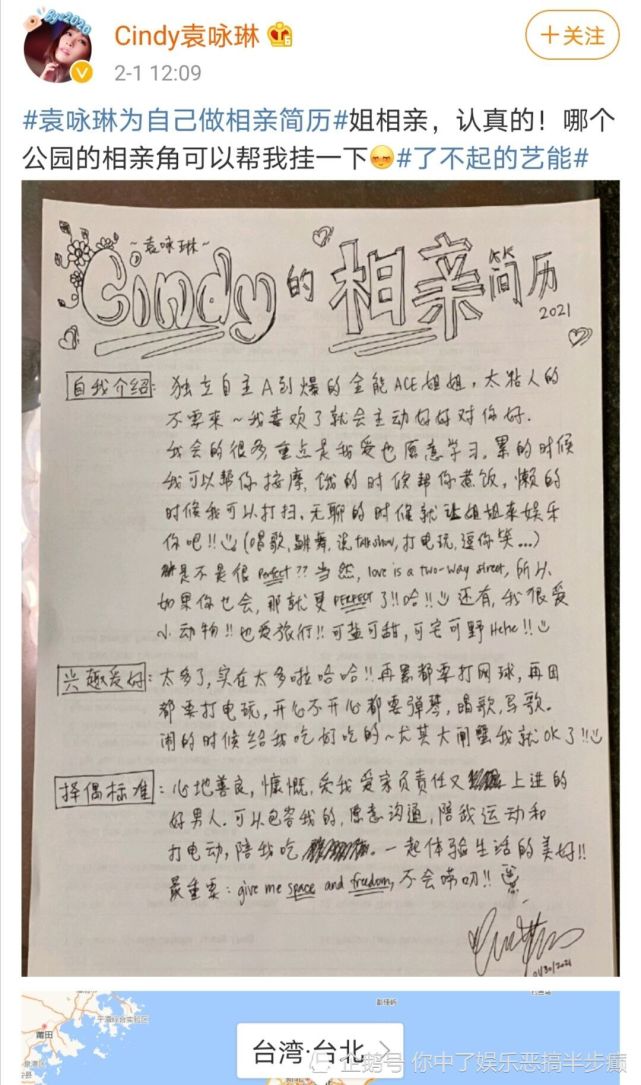 Cindy袁咏琳
2-1 12:09
+关注
#袁咏琳为自己做相亲简历#姐相亲，认真的！哪个
公园的相亲角可以帮我挂一下#了不起的艺能#
~袁咏琳~
Cindy的相亲简历
2021
自我介绍: 独立自主A到爆的全能ACE姐姐, 太黏人的
不要来~我喜欢了就会主动好好对你好.
我会的很多重点是我爱也愿意学习. 累的时候
我可以帮你按摩, 饿的时候帮你煮饭, 懒的
时候我可以打扫, 无聊的时候就让姐姐来娱乐
你吧!! (唱歌, 跳舞, 说talkshow, 打电玩, 逗你笑...)
是不是很perfect?? 当然, love is a two-way street, 所以
如果你也会, 那就更PERFECT了!! 哈!! 还有, 我很爱
小动物!! 也爱旅行!! 可盐可甜, 可宅可野Hehe!!
兴趣爱好: 太多了, 实在太多啦哈哈!! 再累都要打网球, 再困
都要打电玩, 开心不开心都要弹琴, 唱歌, 写歌.
闹的时候给我吃好吃的~尤其大闸蟹我就OK了!!
择偶标准: 心地善良, 慷慨, 爱我爱家负责任又上进的
好男人. 可以包容我的, 愿意沟通, 陪我运动和
打电动, 陪我吃. 一起体验生活的美好!!
最重要: give me space and freedom, 不会唠叨!!
01/30/2021
莆田
平潭综合实验区
台湾·台北 >
企鹅号 你中了娱乐恶搞半步癫